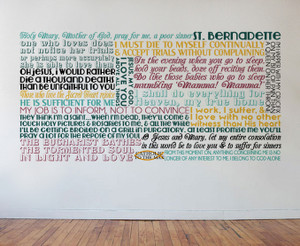 Holy Mary, Mother of God, pray for me, a poor sinner
ST. BERNADETTE
one who loves does
not notice her trials
or perhaps more accurately,
she is able to love them
I MUST DIE TO MYSELF CONTINUALLY
& ACCEPT TRIALS WITHOUT COMPLAINING
OH JESUS, I WOULD RATHER
DIE A THOUSAND DEATHS
THAN BE UNFAITHFUL TO YOU
I LOVE YOU
In the evening when you go to sleep,
hold your beads, doze off reciting them.
Do like those babies who go to sleep
mumbling "Mamma! Mamma!"
I shall do everything for
heaven, my true home
HE IS SUFFICIENT FOR ME
MY JOB IS TO INFORM, NOT TO CONVINCE
I work, I suffer, &
I love with no other
witness than His heart
they think I'm a saint... When I'm dead, they'll come &
touch holy pictures & rosaries to me, & all the while
I'll be getting broiled on a grill in purgatory. At least promise me you'll
pray a lot for the repose of my soul
THE EUCHARIST BATHES
THE TORMENTED SOUL
IN LIGHT AND LOVE
O Jesus and Mary, let my entire consolation
in this world be to love you & to suffer for sinners
FROM THIS MOMENT ON, ANYTHING CONCERNING ME IS NO
LONGER OF ANY INTEREST TO ME. I BELONG TO GOD ALONE